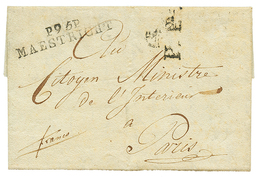 P.95.P.
MAESTRICHT
Au
Citoyen Ministre
de l'Interieur
a
Paris
franco